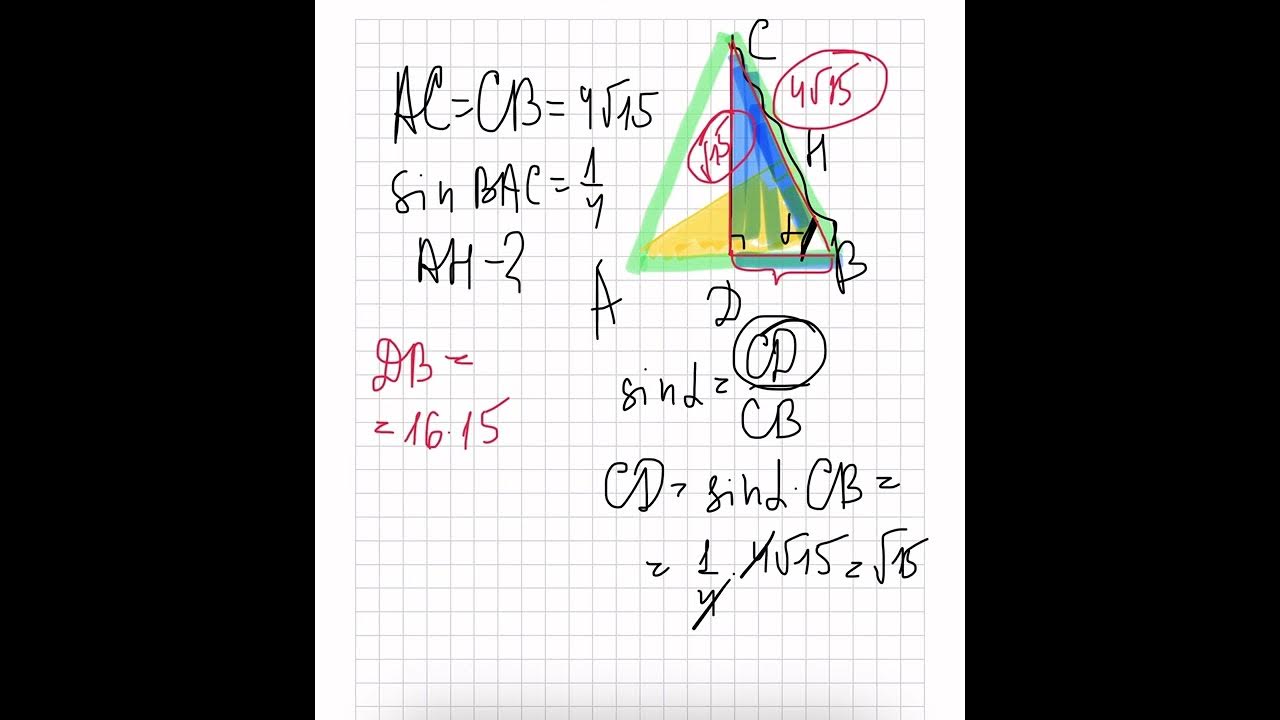 AC=CB=4√15
sin BAC=1/4
AH-?
C
4√15
√15
H
α
B
A
D
DB=
=16·15
sinα=CD/CB
CD=sinα·CB=
=1/4·4√15=√15